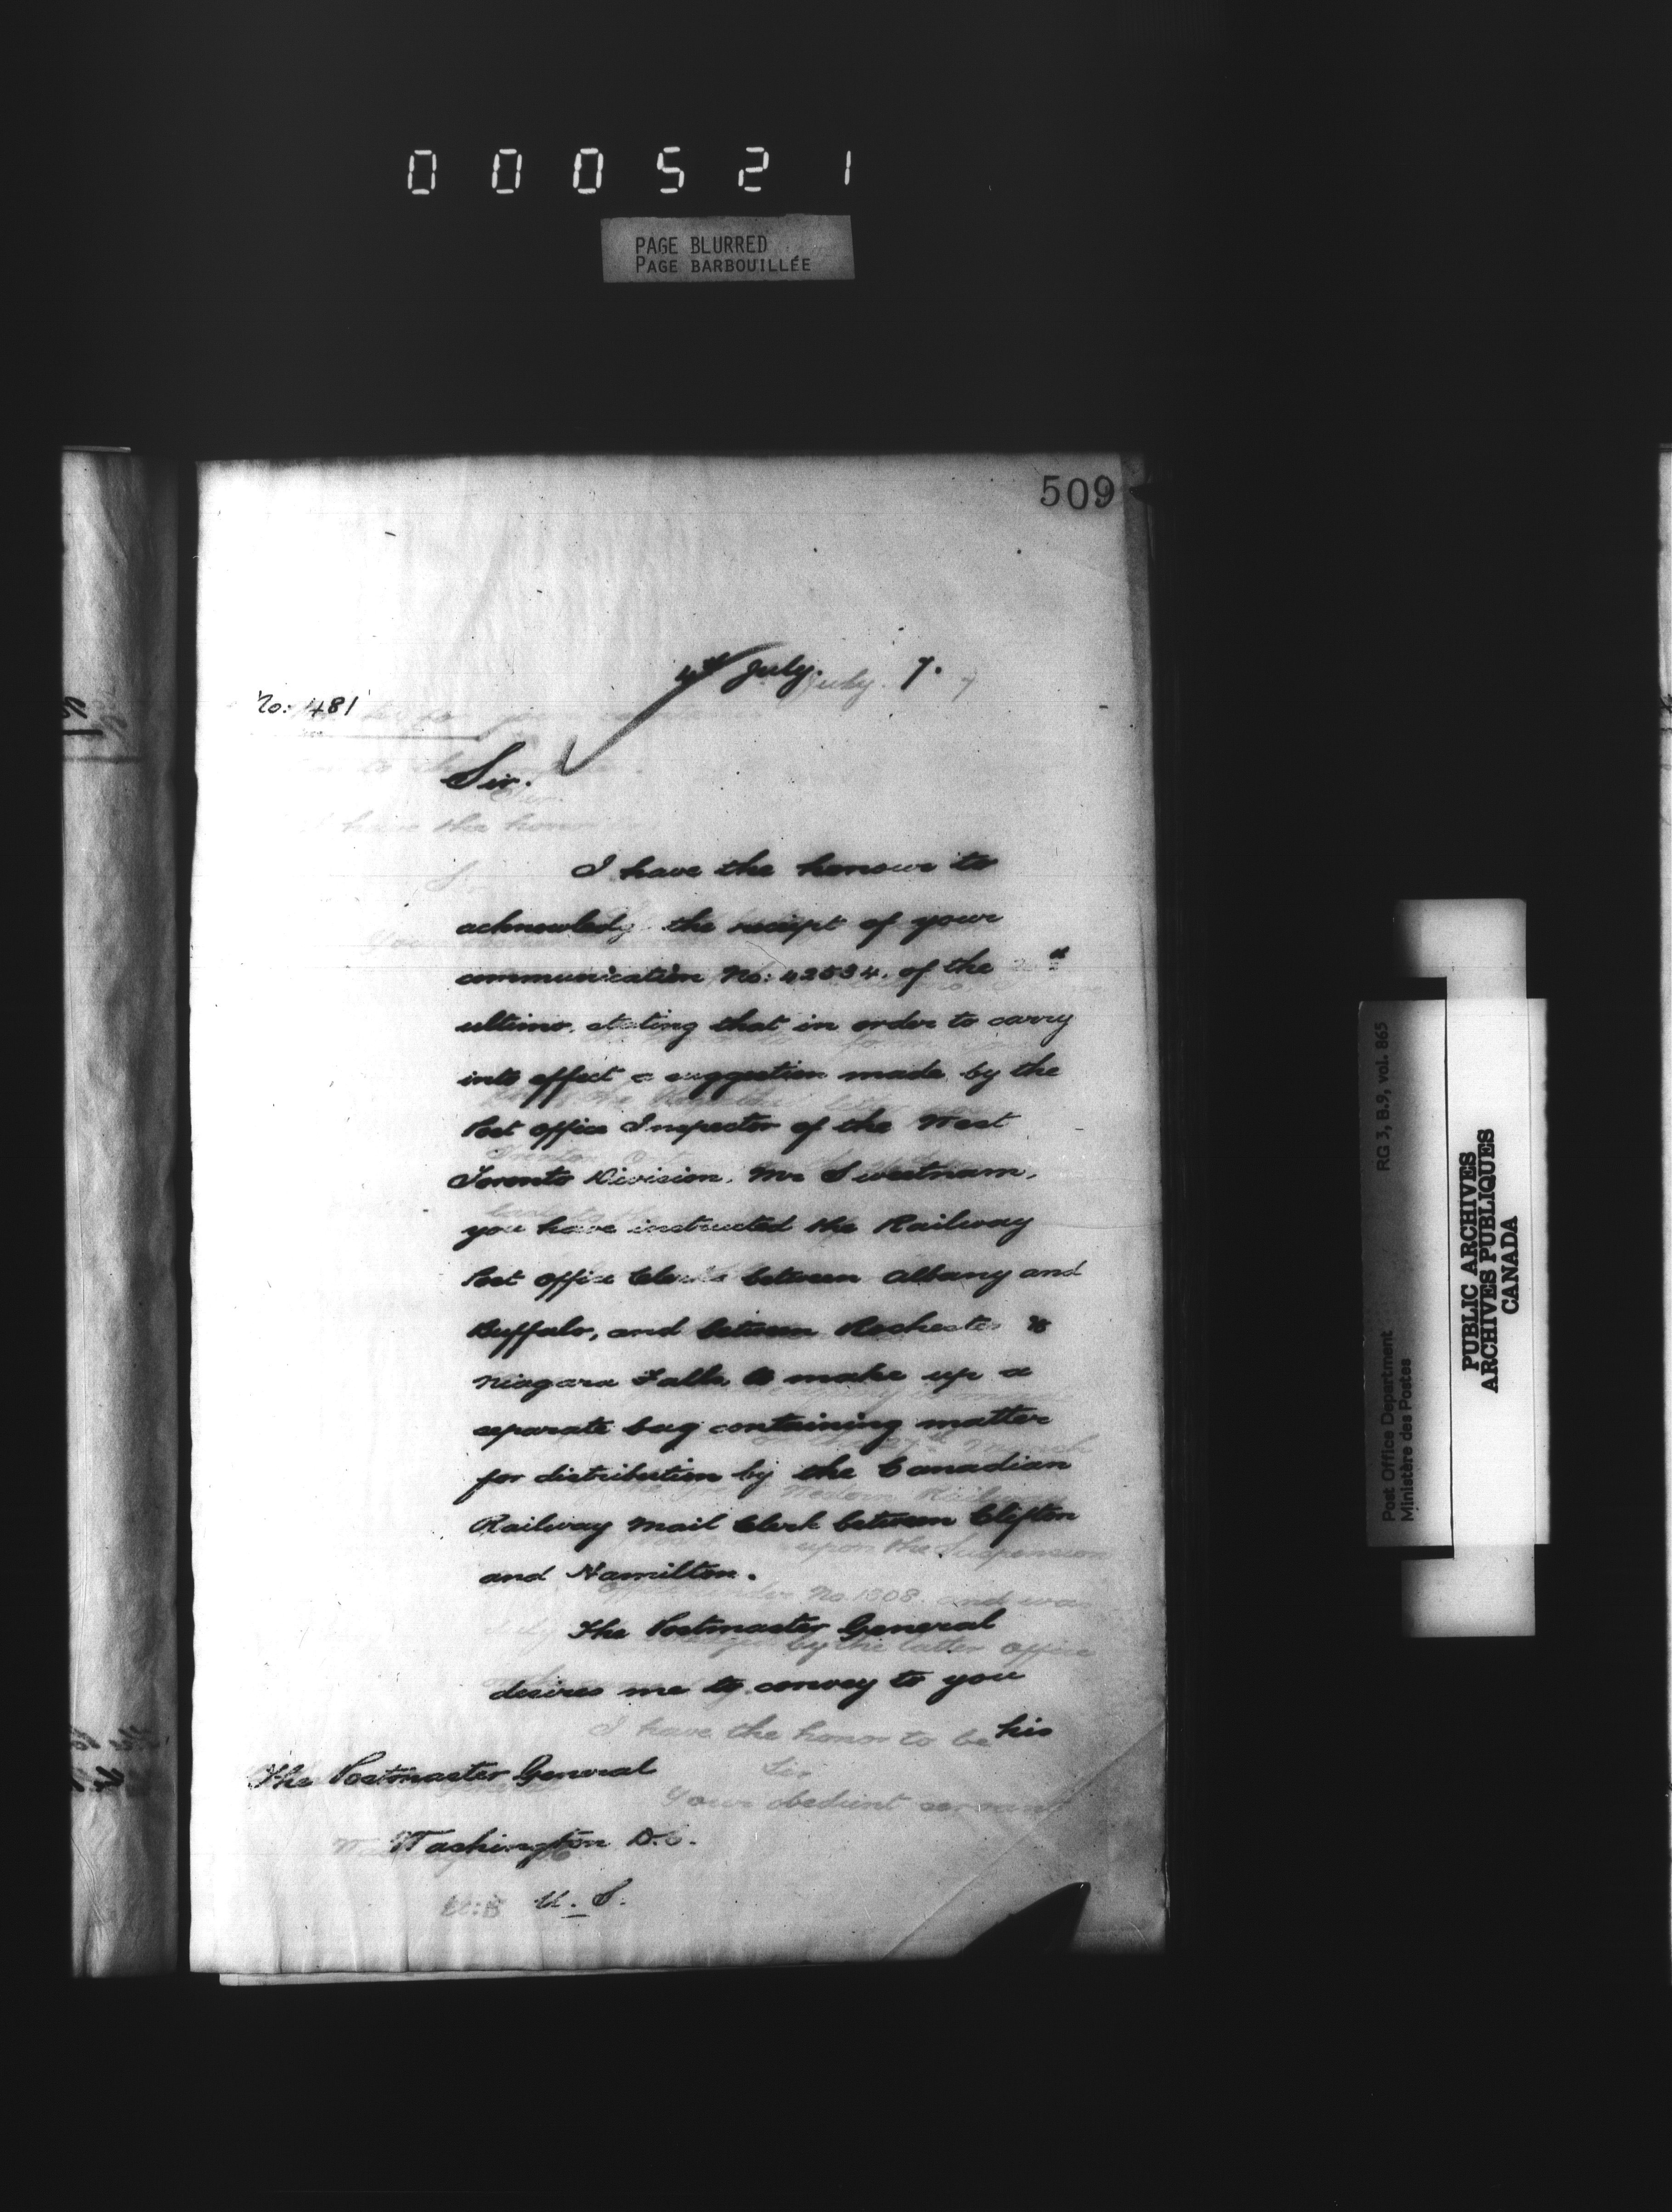 000521
PAGE BLURRED
PAGE BARBOUILLÉE
509
4th July. 7.
No: 481
Sir.
I have the honour to
acknowledg the receipt of your
communication No: 42534. of the
ultimo, stating that in order to carry
into effect a suggestion made by the
Post Office Inspector of the West
Toronto Division, Mr Sweetnam,
you have instructed the Railway
Post Office Clerks between Albany and
Buffalo, and between Rochester &
Niagara Falls to make up a
separate bag containing matter
for distribution by the Canadian
Railway Mail Clerk between Clifton
and Hamilton.
The Postmaster General
desires me to convey to you
his
The Postmaster General
Washington D.C.
U. S.
I have the honor to be
Sir
Your obedient servant
upon the Suspension
No. 1808. and was
by the latter office
RG 3, B.9, vol. 865
Post Office Department
Ministère des Postes
PUBLIC ARCHIVES
ARCHIVES PUBLIQUES
CANADA